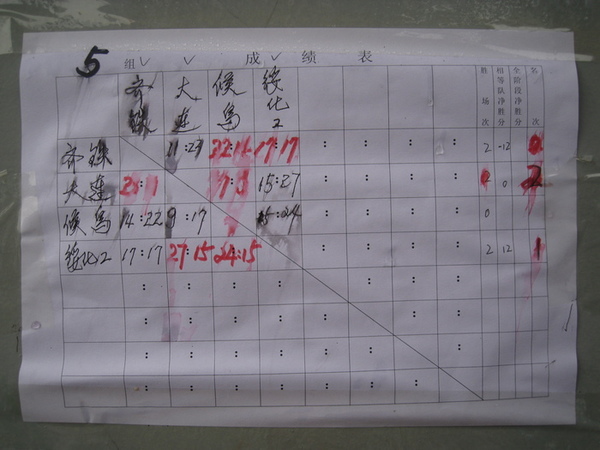 5 组 成绩表
齐铁 大连 候鸟 绥化2 胜场次 相等队净胜分 全阶段净胜分 名次
齐铁 22:14 17:17 2 -12
大连 15:27 0 2
候鸟 14:22 9:17 15:24 0
绥化2 17:17 27:15 24:15 2 12 1